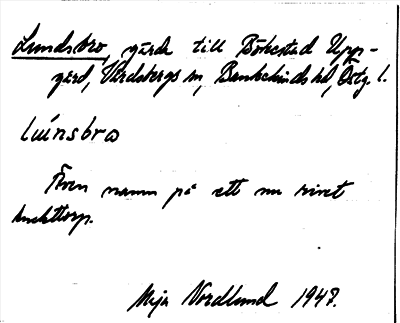 Lundsbro, gärde till Bökestad Upp-
gård, Vårdsbergs sn, Bankekinds hd, Östg. l.
lúnsbro
Även namn på ett nu rivet
knekttorp.
Mija Nordlund 1947.